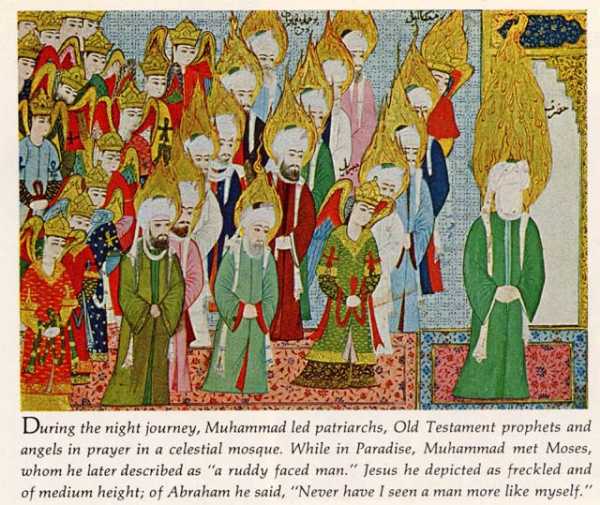 During the night journey, Muhammad led patriarchs, Old Testament prophets and
angels in prayer in a celestial mosque. While in Paradise, Muhammad met Moses,
whom he later described as "a ruddy faced man." Jesus he depicted as freckled and
of medium height; of Abraham he said, "Never have I seen a man more like myself."